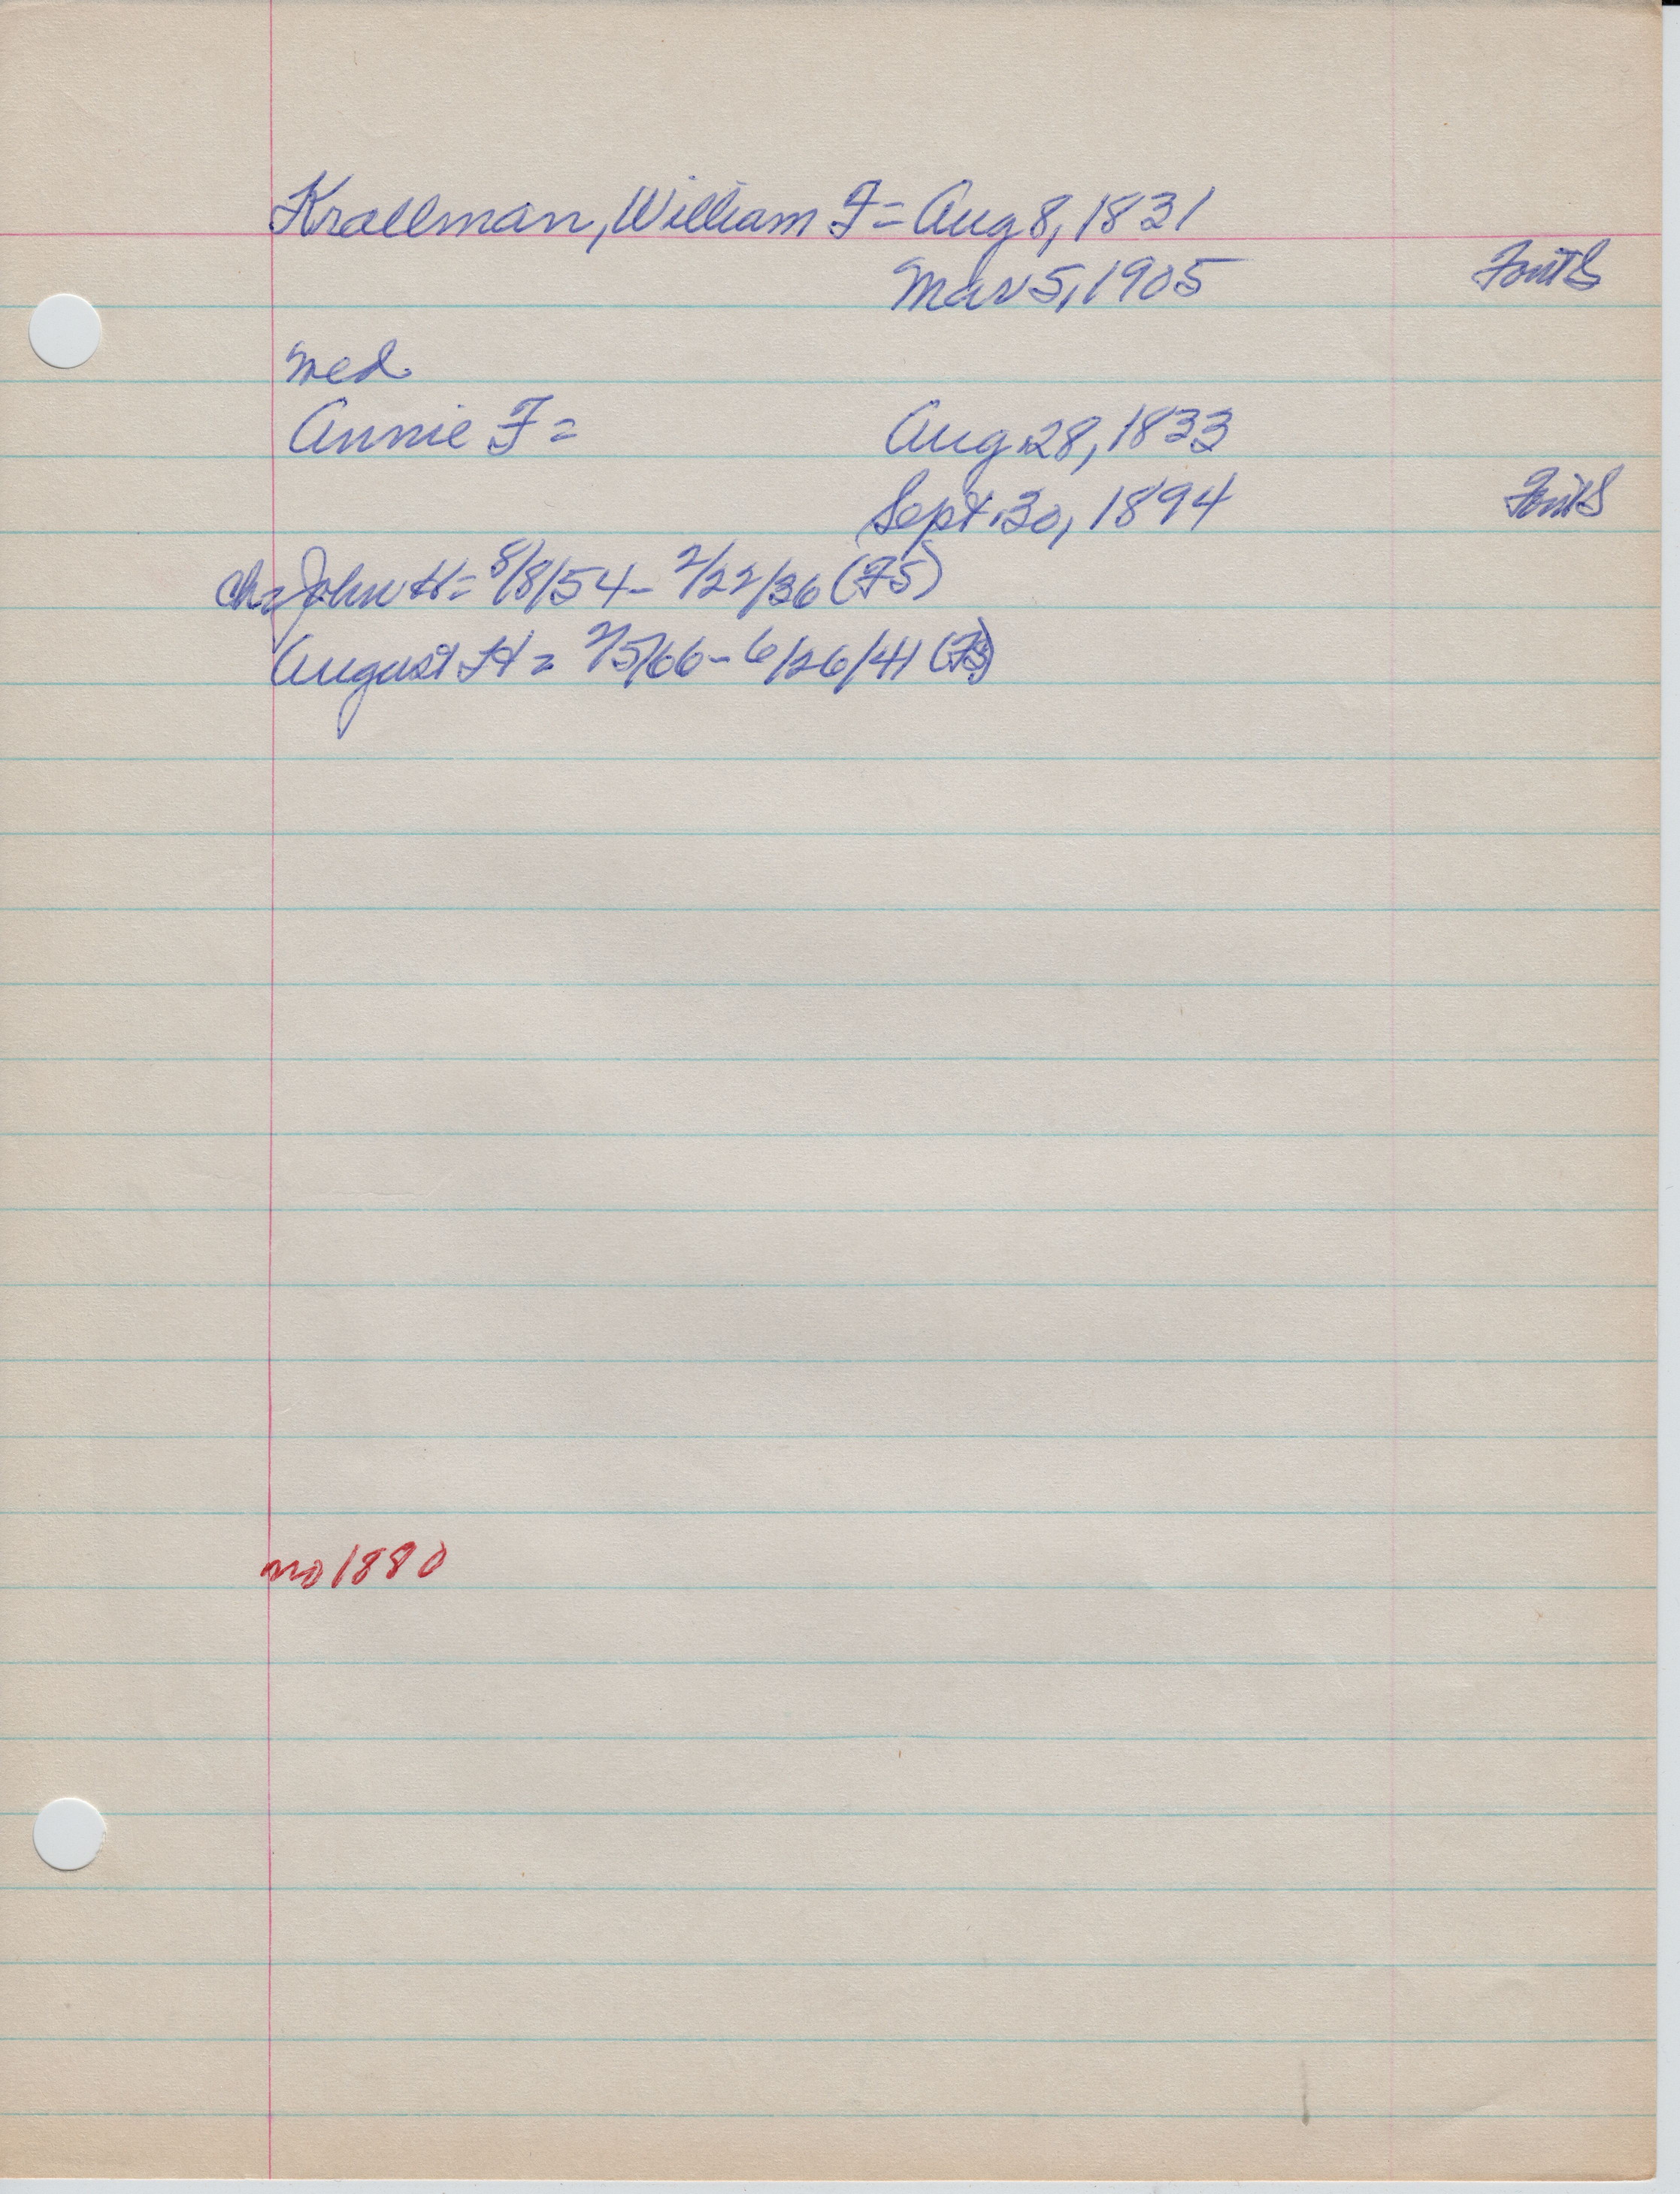 Krallman, William F = Aug 8, 1831
Mar 5, 1905 FontS
med
Annie F = Aug 28, 1833
Sept. 30, 1894 FontS
ch = John H = 8/8/54 - 2/22/36 (FS)
August H = 2/5/66 - 6/26/41 (FS)
no 1880